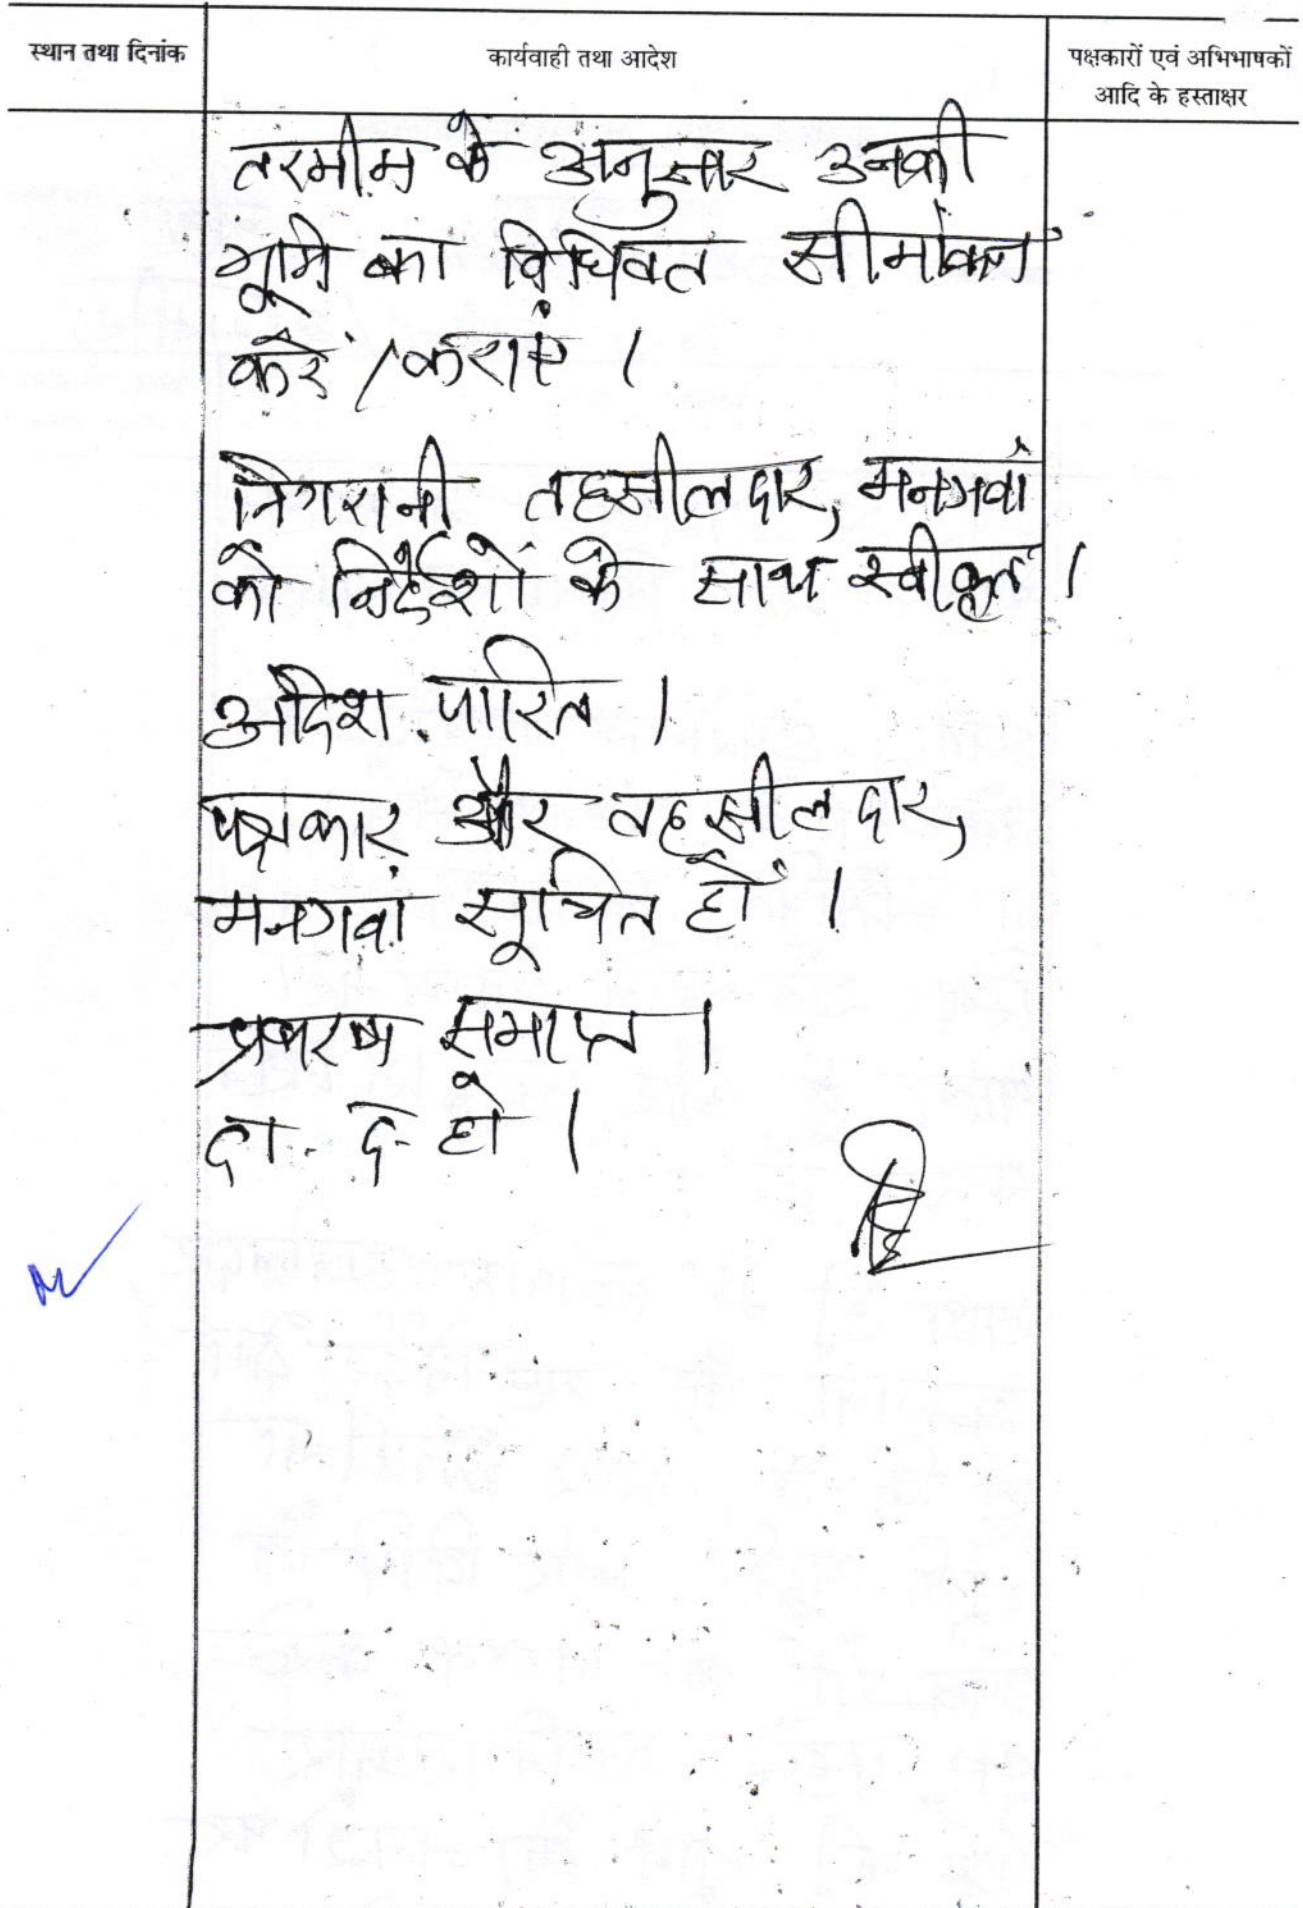 स्थान तथा दिनांक
कार्यवाही तथा आदेश
पक्षकारों एवं अभिभाषकों
आदि के हस्ताक्षर
तरमीम के अनुसार उनकी
भूमि का विधिवत सीमांकन
करें / कराएं ।
निगरानी तहसीलदार, मनगवां
को निर्देशों के साथ स्वीकृत ।
आदेश पारित ।
पक्षकार और तहसीलदार,
मनगवां सूचित हों ।
प्रकरण समाप्त ।
दा. द. हो ।